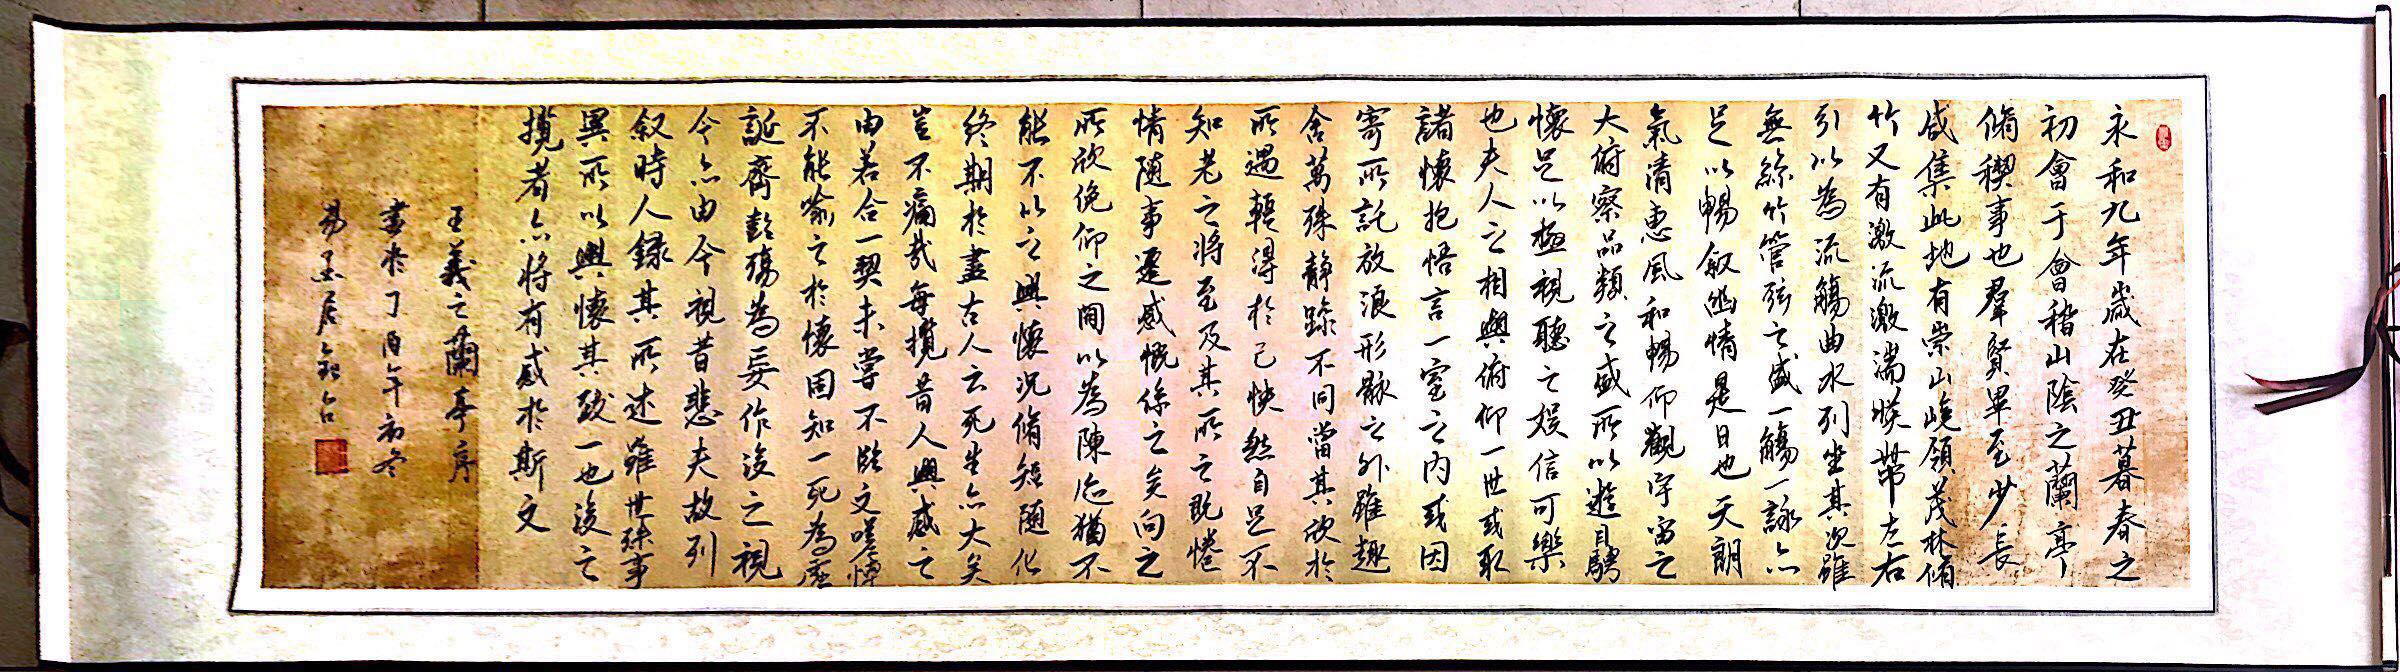 永和九年歲在癸丑暮春之
初會于會稽山陰之蘭亭
脩稧事也羣賢畢至少長
咸集此地有崇山峻領茂林脩
竹又有激流激湍暎帶左右
引以為流觴曲水列坐其次雖
無絲竹管弦之盛一觴一詠亦
足以暢叙幽情是日也天朗
氣清惠風和暢仰觀宇宙之
大俯察品類之盛所以遊目騁
懷足以極視聽之娛信可樂
也夫人之相與俯仰一世或取
諸懷抱悟言一室之內或因
寄所託放浪形骸之外雖趣
舍萬殊靜躁不同當其欣於
所遇輕得於己快然自足不
知老之將至及其所之既惓
情隨事遷感慨係之矣向之
所欣俛仰之間以為陳迹猶不
能不以之興懷況脩短隨化
終期於盡古人云死生亦大矣
豈不痛哉每攬昔人興感之
由若合一契未嘗不臨文嗟悼
不能喻之於懷固知一死為虛
誕齊彭殤為妄作後之視
今亦由今視昔悲夫故列
叙時人錄其所述雖世殊事
異所以興懷其致一也後之
攬者亦將有感於斯文
王羲之蘭亭序
書於丁酉年初冬
易居